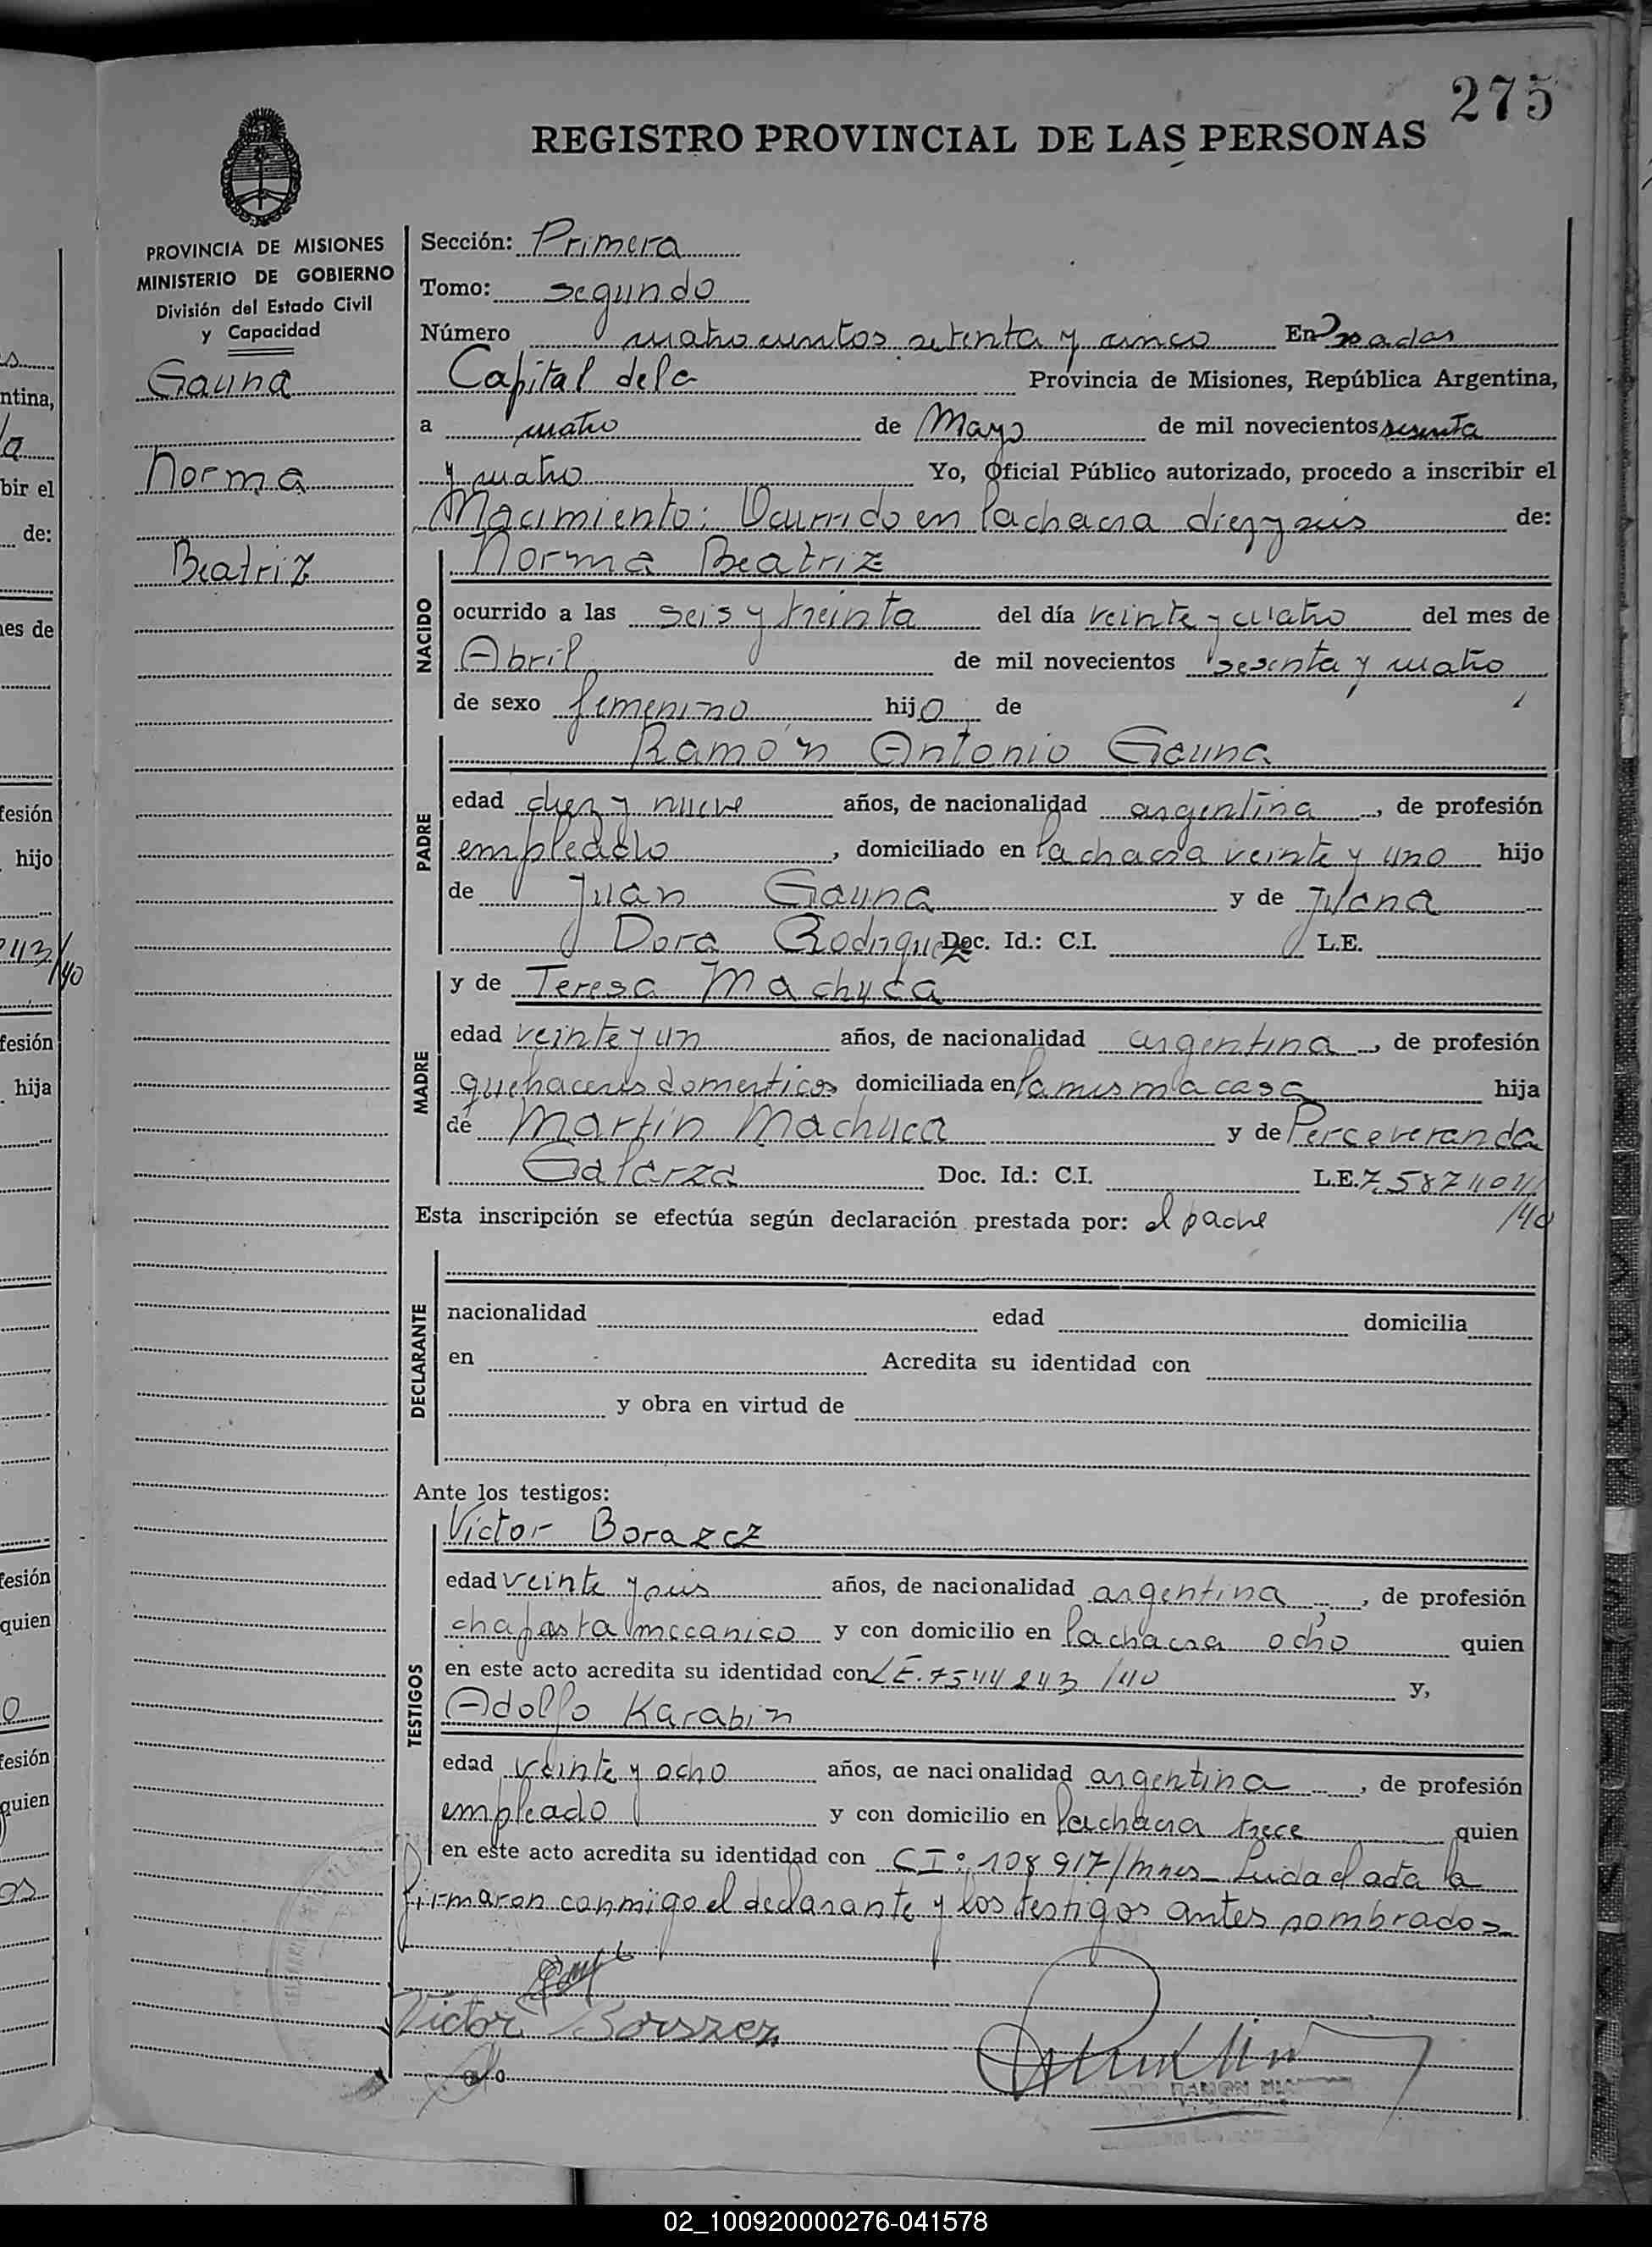 275
REGISTRO PROVINCIAL DE LAS PERSONAS
PROVINCIA DE MISIONES
MINISTERIO DE GOBIERNO
División del Estado Civil
y Capacidad
Gauna
Norma
Beatriz
Sección: Primera
Tomo: segundo
Número cuatrocientos setenta y cinco En Posadas
Capital de la Provincia de Misiones, República Argentina,
a cuatro de Mayo de mil novecientos sesenta
y cuatro Yo, Oficial Público autorizado, procedo a inscribir el
Nacimiento: Ocurrido en la chacra diez y seis de:
NACIDO
Norma Beatriz
ocurrido a las seis y treinta del día veinte y cuatro del mes de
Abril de mil novecientos sesenta y cuatro
de sexo femenino hijo de
PADRE
Ramón Antonio Gauna
edad diez y nueve años, de nacionalidad argentina, de profesión
empleado, domiciliado en la chacra veinte y uno hijo
de Juan Gauna y de Juana
Dora Rodriguez Doc. Id.: C.I. L.E.
MADRE
y de Teresa Machuca
edad veinte y un años, de nacionalidad argentina, de profesión
quehaceres domesticos domiciliada en la misma casa hija
de Martín Machuca y de Perceveranda
Galarza Doc. Id.: C.I. L.E. 7.587404/
/40
Esta inscripción se efectúa según declaración prestada por: el padre
DECLARANTE
nacionalidad edad domicilia
en Acredita su identidad con
y obra en virtud de
Ante los testigos:
TESTIGOS
Victor
edad veinte y seis años, de nacionalidad argentina, de profesión
chapista mecanico y con domicilio en la chacra ocho quien
en este acto acredita su identidad con L E. 7544243/40 y,
Adolfo Karabin
edad veinte y ocho años, de nacionalidad argentina, de profesión
empleado y con domicilio en la chacra trece quien
en este acto acredita su identidad con C I: 108917/Mnes_ Leida el acta la
firmaron conmigo el declarante y los testigos antes nombrados_
Victor
02_100920000276-041578